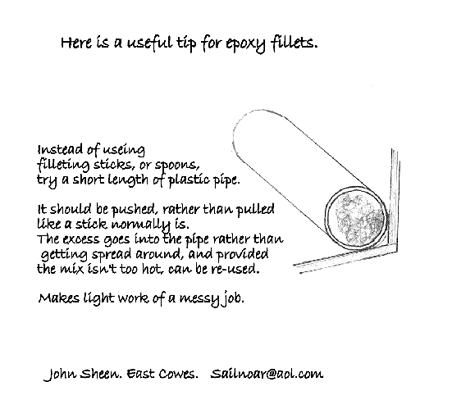 Here is a useful tip for epoxy fillets.
Instead of useing
filleting sticks, or spoons,
try a short length of plastic pipe.
It should be pushed, rather than pulled
like a stick normally is.
The excess goes into the pipe rather than
getting spread around, and provided
the mix isn't too hot, can be re-used.
Makes light work of a messy job.
John Sheen. East Cowes. Sailnoar@aol.com